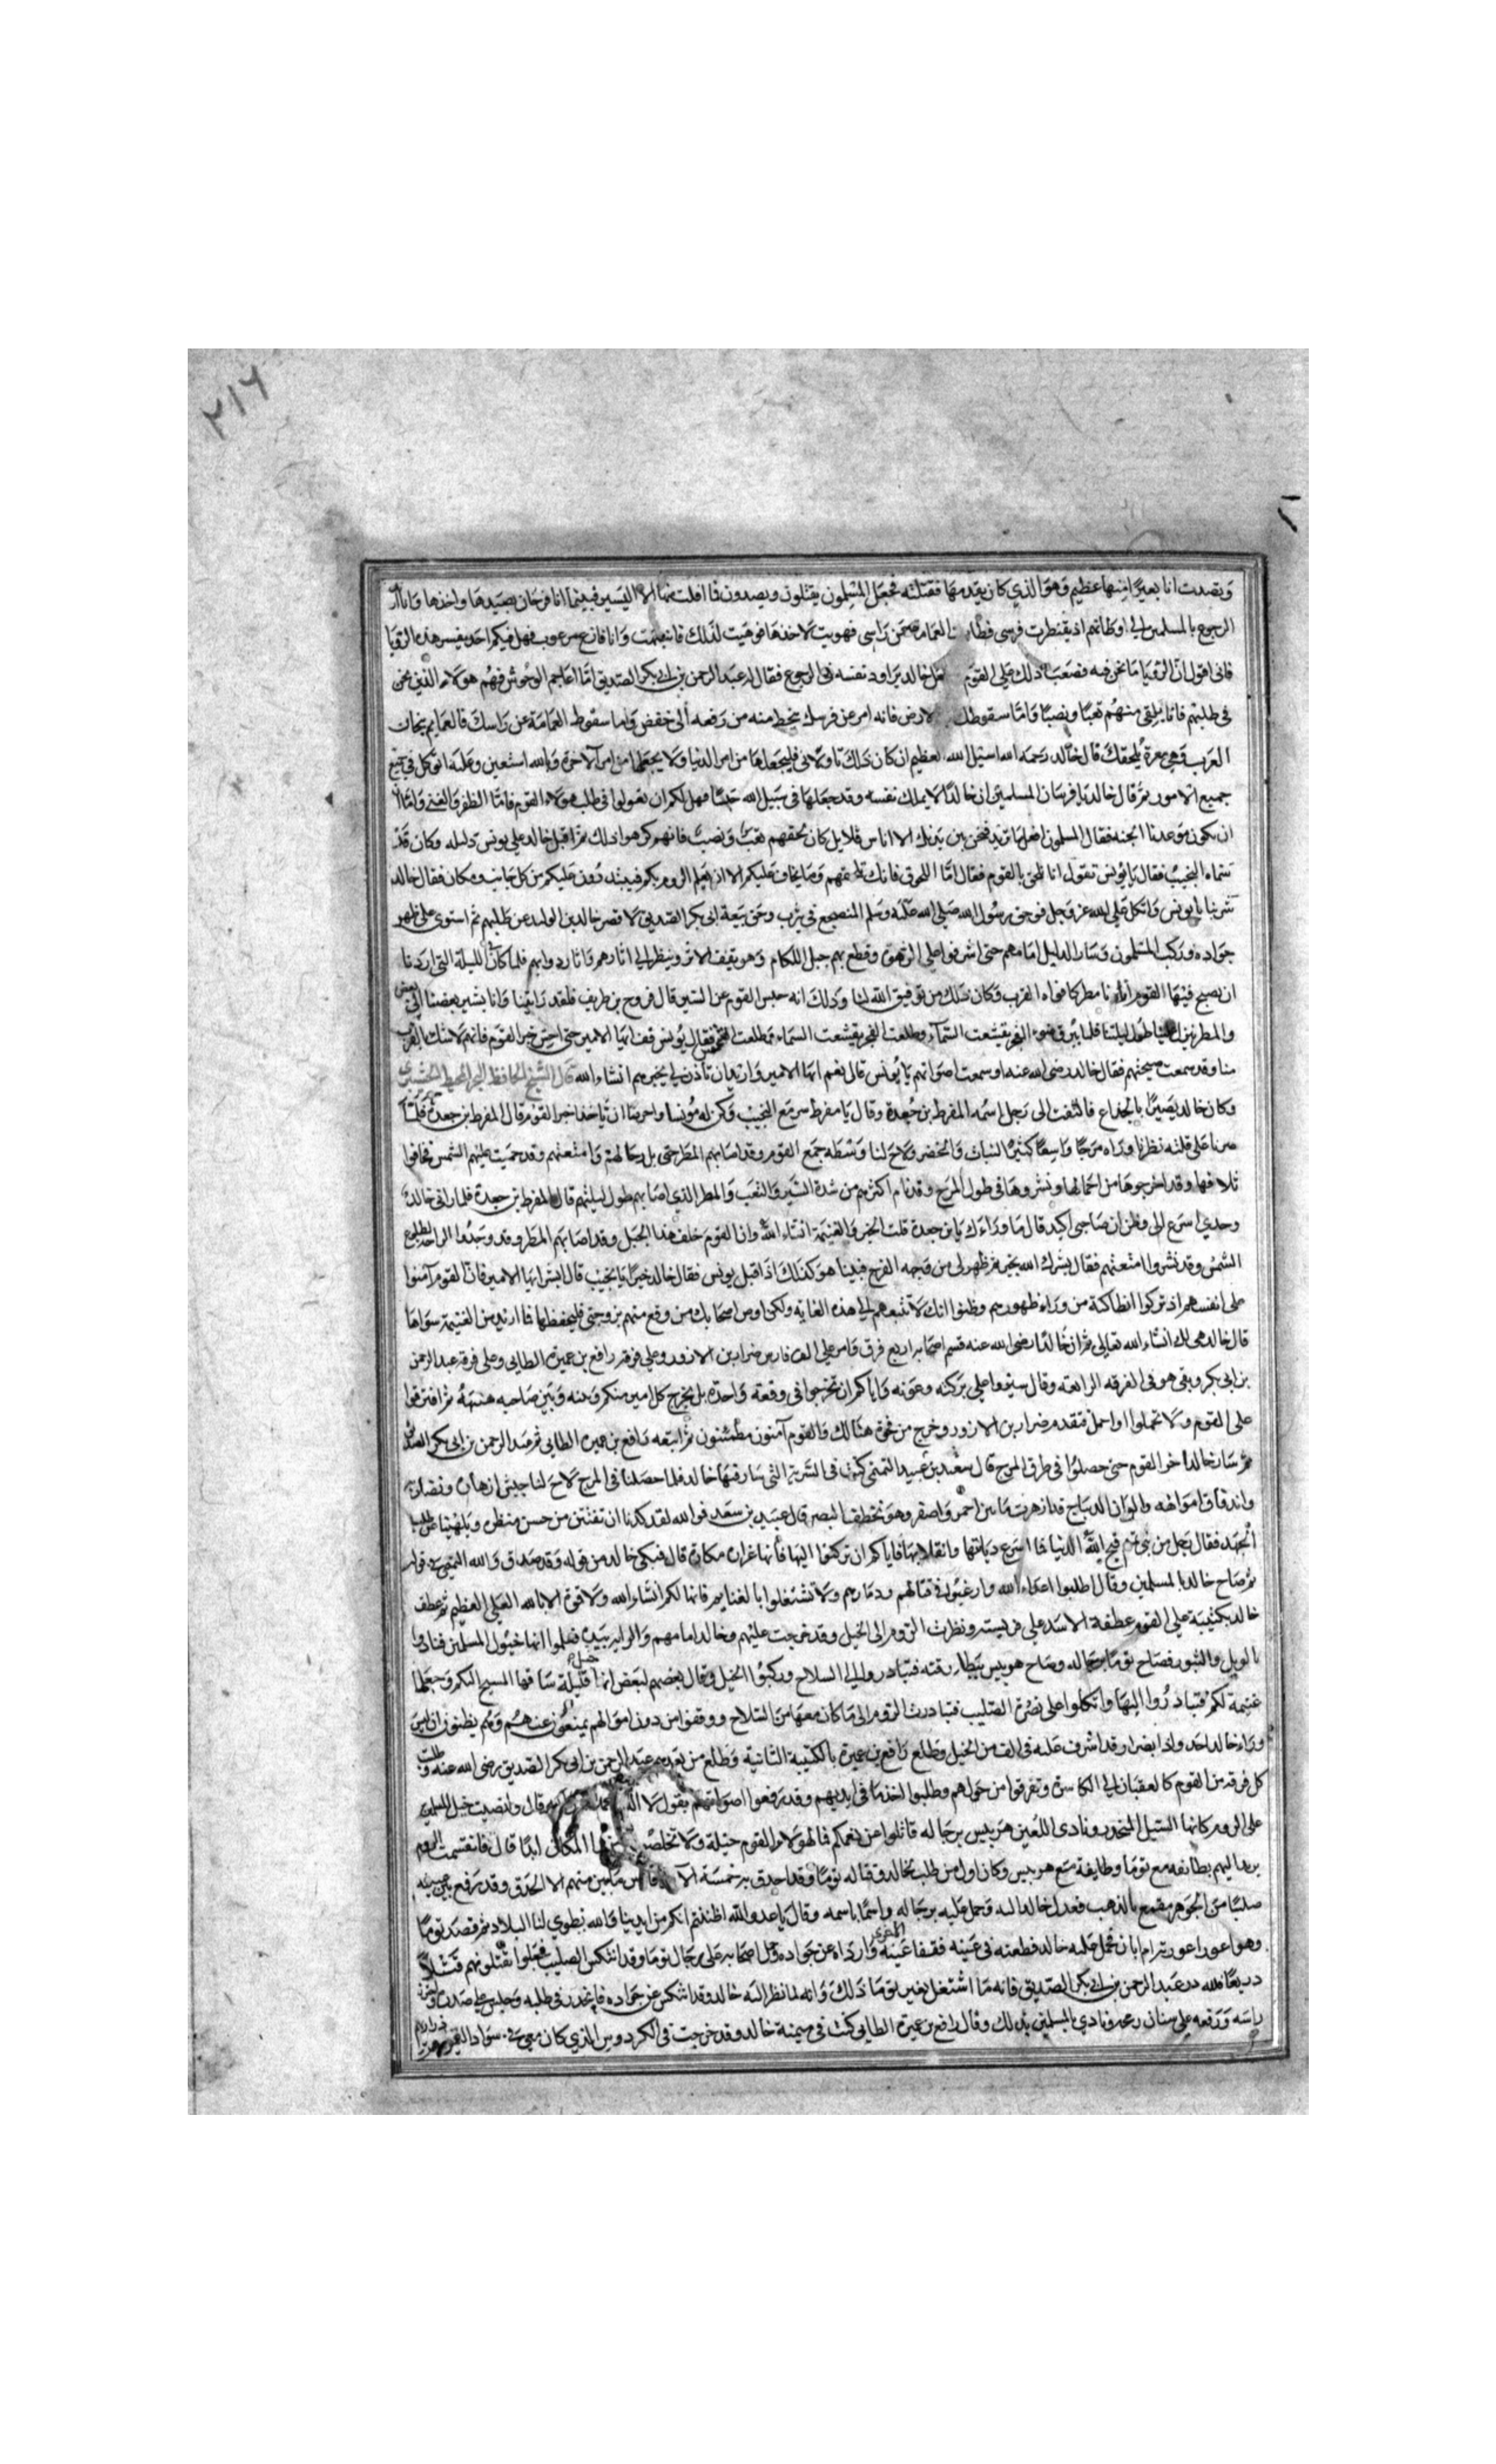 ٢١٦
وقصدت انا بعيرًا منها عظيم وهو الذي كان يقدمها فقتلته فجعل المسلمون يقتلون ويصيدون فما افلت منها الا اليسير فبينما انا فرحان بصيدها واخذها وانا اريد
الرجوع بالمسلمين الى اوطانهم اذ تقنطرت فرسي فطارت العمامه عن راسي فهويت لاخذها فوهيت لذلك فانتبهت وانا فازع مرعوب فهل فيكم احد يفسر هذه الرؤيا
فاني اقول ان الرؤيا ما نحن فيه فصعب ذلك على القوم خالد يراود نفسه في الرجوع فقال له عبد الرحمن بن ابي بكر الصديق امّا اعاجم الوحوش فهم هولاء الذين نحن
في طلبهم فانا نلقى منهم تعبًا ونصبًا وامّا سقوطك الارض فانه امر عن فرسك ينحط منه من رفعه الى خفض واما سقوط العمامة عن راسك فالعمايم تيجان
العرب وهي معرة تلحقك قال خالد رحمه الله اسئل الله العظيم ان كان ذلك تاويلا فليجعلها من امر الدنيا ولا يجعلها من امر الآخرة وبالله استعين وعليه اتوكل في جميع
جميع الامور ثم قال خالد يا فرسان المسلمين ان خالدًا لا يملك نفسه وقد جعلها في سبيل الله حبسًا فهل لكم ان تعولوا في طلب هولاء القوم فامّا الظفر والغنى وامّا
ان يكون موعدنا الجنه فقال المسلمون افعل ما تريد فنحن بين يديك الا اناس قلايل كان لحقهم تعب ونصب فانهم كرهوا ذلك ثم اقبل خالد على يونس دليله وكان قد
سماه النجيب فقال يا يونس تقول انا نلحق بالقوم فقال امّا اللحوق فانك تلحقهم وما يخاف عليكم الا ان يعلم الروم بكم فيبتدرون عليكم من كل جانب ومكان فقال خالد
سر بنا يا يونس واتكل على الله عز وجل فوحق رسول الله صلى الله عليه وسلم المضجع في يثرب وحق بيعة ابي بكر الصديق لا قصر خالد بن الوليد عن طلبهم ثم استوى على ظهر
جواده وركب المسلمون وسار الدليل امامهم حتى اشرفوا على الزهوق وقطع بهم جبل اللكام وهو يقيف الاثر وينظر الى اثارهم واثار دوابهم فلما كان الليلة التي اردنا
ان نصبح فيها القوم اتانا مطر كافواه القرب فكان ذلك من توفيق الله لنا وذلك انه حبس القوم عن السير قال فروح بن طريف فلقد رايتنا وانا يشير بعضنا الى بعض
والمطر ينزل علينا طول ليلتنا فلما برق ضوء الفجر تقشعت السماء وطلعت الشمس فقال يونس قف ايها الامير حتى احس خبر القوم فانهم لا شك بالقرب
منا وقد سمعت صيحتهم فقال خالد رضي الله عنه اوسمعت اصواتهم يا يونس قال نعم ايها الامير واريد ان تأذن لي بخبرهم ان شاء الله
وكان خالد بصيرًا بالخداع فالتفت الى رجل اسمه المفرط بن جعدة وقال يا مفرط سر مع النجيب وكن له مونسا واحرصا ان تاخذا خبر القوم قال المفرط بن جعدة فلمّا
صرنا على قلته نظرنا وراه مرجًا واسعًا كثير النبات والخضر ولاح لنا وسطه جمع القوم وقد اصابهم المطر حتى بل رحالهم وامتعتهم وقد حميت عليهم الشمس فخافوا
تلافها وقد اخرجوها من احمالها ونشروها في طول المرج وقد نام اكثرهم من شدة السير والتعب والمطر الذي اصابهم طول ليلتهم قال المفرط بن جعدة فلما راني خالد
وحدي اسرع الي وظن ان صاحبي اكيد قال ما وراءك يا بن جعدة قلت الخير والغنيمة انشاء الله وان القوم خلف هذا الجبل وقد اصابهم المطر وقد وجدوا الراحة بطلوع
الشمس وقد نشروا امتعتهم فقال بشرك الله بخير ثم ظهر لي من وجهه الفرح فبينا هو كذلك اذ اقبل يونس فقال خالد خيرًا يا نجيب قال ابشر ايها الامير فان القوم آمنوا
على انفسهم اذ تركوا انطاكية من وراء ظهورهم وظنوا انك لا تتبعهم الى هذه الغاية ولكن اوص اصحابك من وقع منهم بزوجتي فليحفظها فما اريد من الغنيمة سواها
قال خالد هي لك انشاء الله تعالى ثم ان خالدًا رضي الله عنه قسم اصحابه اربع فرق فامر على الف فارس ضرار بن الازور وعلى فرقة رافع بن عميرة الطائي وعلى فرقة عبد الرحمن
بن ابي بكر وبقى هو في الفرقه الرابعة وقال سيروا على بركته وعونه واياكم ان تخرجوا في وقعة واحدة بل يخرج كل امير منكم وبينه وبين صاحبه هنيهة ثم افترقوا
على القوم ولا تحملوا او احمل فتقدم ضرار بن الازور وخرج من فجوة هنالك والقوم آمنون مطمئنون ثم اتبعه رافع بن عميرة الطائي ثم عبد الرحمن بن ابي بكر الصديق
ثم سار خالد اخر القوم حتى حصلوا في طرق المرج قال سعيد بن عبيد التميمي كنت في السرية التي سار فيها خالد فلما حصلنا في المرج لاح لنا
واندفاق امواهه والوان الديباج قد ازهرت ما بين احمر واصفر وهو يخطف البصر قال عبيد بن سعيد فوالله لقد كدنا ان نفتتن من حسن منظره ويلهينا عن طلب
الجهد فقال رجل من بني تميم قبح الله الدنيا فما اسرع دبابتها وانقلابها فاياكم ان تركنوا اليها فانها غرارة مكارة قال فبكى خالد من قوله وقد صدق والله التميمي في قوله
ثم صاح خالد بالمسلمين وقال اطلبوا اعداء الله وارغبوا في قتالهم ودمارهم ولا تشتغلوا بالغنايم فانها لكم انشاء الله ولا قوة الا بالله العلي العظيم ثم عطف
خالد بكتيبة على القوم عطفة الاسد على فريسته ونظرت الروم الى الخيل وقد خرجت عليهم وخالد امامهم والراية بيده فعلموا انها خيول المسلمين فنادوا
بالويل والثبور فصاح توما برجاله وصاح هربيس ببطارقته فتبادروا الى السلاح وركبوا الخيل وقال بعضهم لبعض انها خيل قليلة ساقها المسيح اليكم وجعلها
غنيمة لكم فتبادروا اليها واتكلوا على نصرة الصليب فتبادرت الروم الى ما كان معها من السلاح ووقفوا من دون اموالهم يمنعون عنهم وهم يظنون ان ليس
وراء خالد احد واذا بضرار قد اشرف عليه في الف من الخيل وطلع رافع بن عميرة بالكتيبة الثانية وطلع من بعده عبد الرحمن بن ابي بكر الصديق رضي الله عنه وطلبت
كل فرقه من القوم كالعقبان الى الكاسرة وتفرقوا من حولهم وطلبوا اخذ ما في ايديهم وقد رفعوا اصواتهم بقول لا اله قال وانصبت خيل المسلمين
على الروم كانها السيل المنحدر ونادى اللعين هربيس برجاله قاتلوا عن نعمكم فما لهولاء القوم حيلة ولا تخلص من هذا المكان ابدًا قال فانقسمت الروم
بطايفه مع توما وطايفة مع هربيس وكان اول من طلب خالد وقتاله توما وقد احدق به خمسة الاف فارس ما يبين منهم الا الحدق وقد رفع بين يديه
صليبًا من الجوهر مقمع بالذهب فعدل خالد اليه وحمل عليه برجاله واسمًا باسمه وقال يا عدو الله اظننتم انكم من ايدينا والله يطوي لنا البلاد ثم قصد توما
وهو اعور اعورته ام ابان فحمل عليه خالد فطعنه في عينه ففقا عينه الاخرى وارداه عن جواده وحمل اصحابه على رجال توما وقد انتكس الصليب فجعلوا يقتلونهم قتلًا
ذريعًا فلله در عبد الرحمن بن ابي بكر الصديق فانه ما اشتغل بغير توما ذلك وانه لما نظر اليه خالد وقد انتكس عن جواده فانحدر في طلبه وجلس على صدره وحز
راسه ورفعه على سنان رمحه ونادى بالمسلمين بذلك وقال رافع بن عميرة الطائي كنت في ميمنة خالد وقد خرجت في الكردوس الذي كان معي